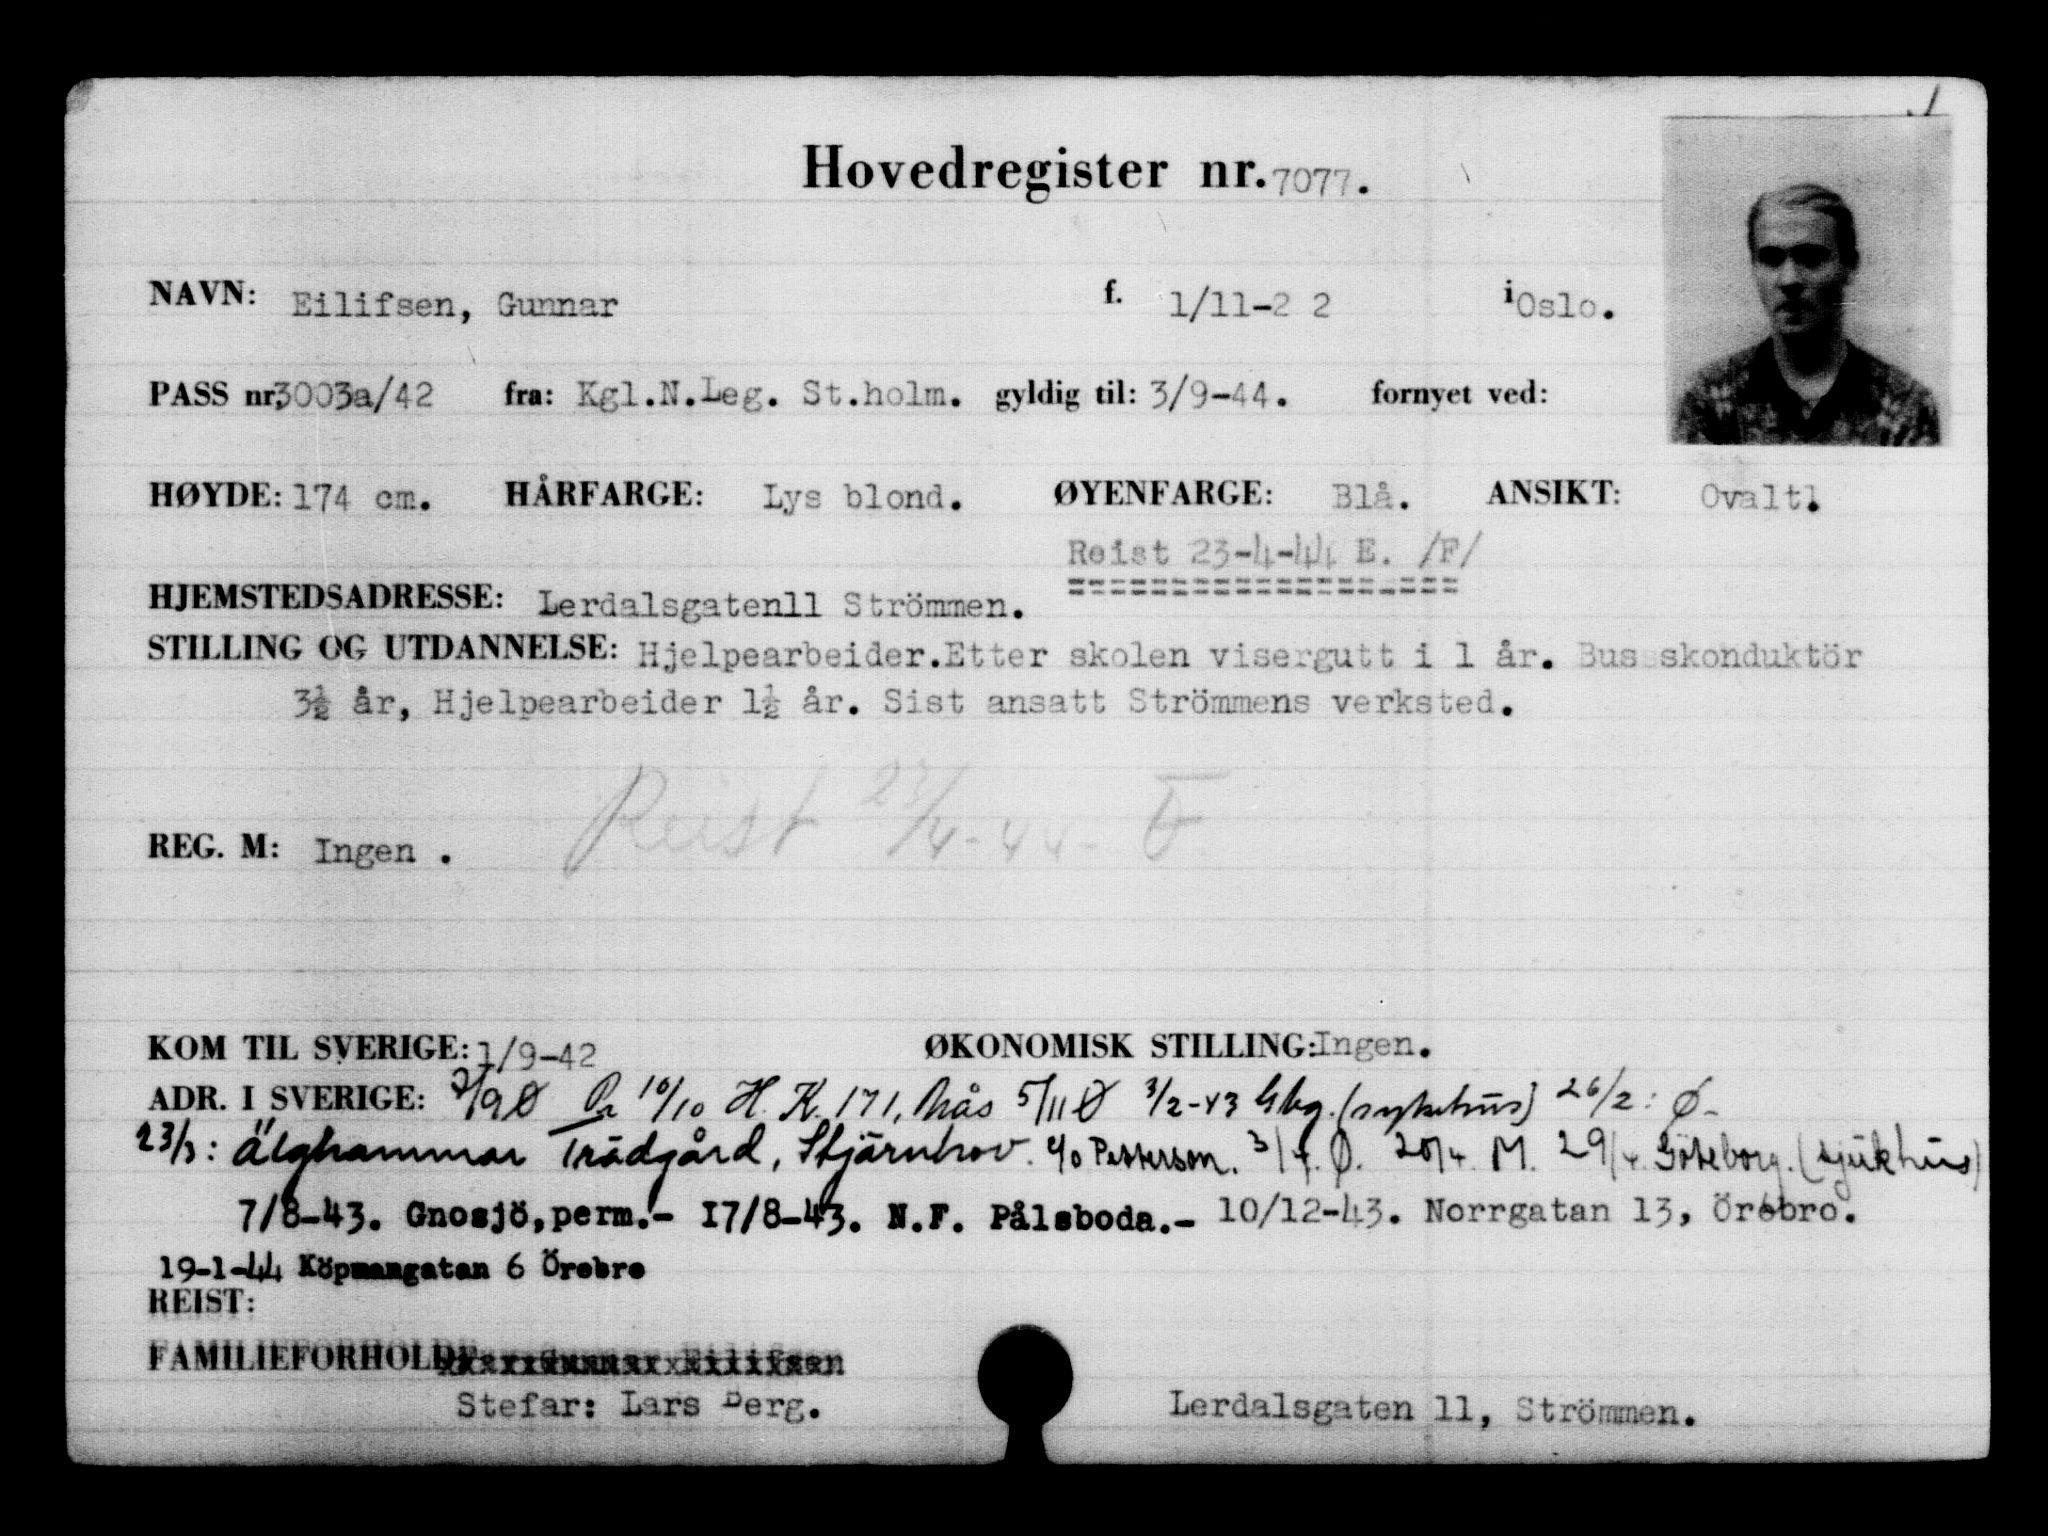 Hovedregister nr. 7077.
NAVN: Eilifsen, Gunnar f. 1/11-2 2 i Oslo.
PASS nr. 3003a/42 fra: Kgl.N.Leg. St.holm. gyldig til: 3/9-44. fornyet ved:
HØYDE: 174 cm. HÅRFARGE: Lys blond. ØYENFARGE: Blå. ANSIKT: Ovalt.
Reist 23-4-44 E. /F/
HJEMSTEDSADRESSE: Lerdalsgaten11 Strömmen.
STILLING OG UTDANNELSE: Hjelpearbeider.Etter skolen visergutt i 1 år. Bussskonduktör
3½ år, Hjelpearbeider 1½ år. Sist ansatt Strömmens verksted.
Reist 23/4-44 F
REG. M: Ingen .
KOM TIL SVERIGE: 1/9-42 ØKONOMISK STILLING: Ingen.
ADR. I SVERIGE: 7/9 Ø 10/10 H. K. 171, Nås 5/11 Ø 3/2-43 Gbg. (sykehus) 26/2: Ø-
23/3: Älghammar Trädgård, Stjärnhov. c/o Petterson. 3/4. Ø. 20/4. M. 29/4. Göteborg. (sjukhus)
7/8-43. Gnosjö,perm.- 17/8-43. N.F. Pålsboda.- 10/12-43. Norrgatan 13, Örebro.
19-1-44 Köpmangatan 6 Örebro
REIST:
FAMILIEFORHOLD Gunnar Eilifsen
Stefar: Lars Berg. Lerdalsgaten 11, Strömmen.